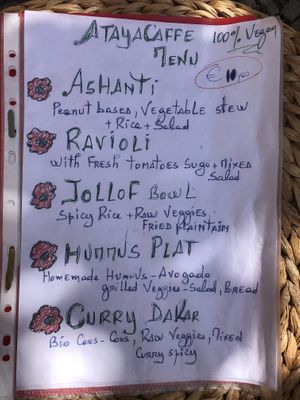 ATAYA CAFFE
100% Vegan
MENU
€ 10,00
ASHANTI
Peanut based, Vegetable stew
+ Rice + Salad
RAVIOLI
with Fresh tomatoes Sugo + Mixed
Salad
JOLLOF BOWL
Spicy Rice + Raw Veggies
Fried Plaintain
HUMMUS PLAT
Homemade Humus - Avogado
grilled Veggies - Salad, Bread
CURRY DAKAR
Bio Cous - Cous, Raw Veggies, Mixed
Curry spicy